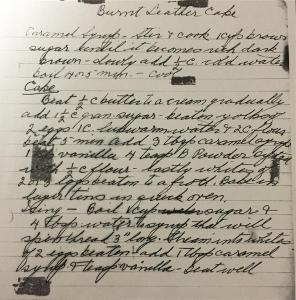 Burnt Leather Cake
Caramel Syrup - Stir & cook 1 cup brown
sugar until it becomes rich dark
brown - slowly add ½ c. cold water
boil 4 or 5 min. - Cool
Cake
Beat ½ c butter to a cream gradually
add 1½ c gran. sugar - beaten yolks of
2 eggs 1 C. lukewarm water & 2 C flour
beat 5 min add 3 tbsp caramel syrup
1 tsp vanilla 4 teasp B. Powder
with ½ c flour - lastly whites of
2 or 3 eggs beaten to a froth. Bake in
layer tins in quick oven.
Icing - Boil 1 cup sugar &
4 tbsp water to syrup that will
spin thread 3" long - Stream into whites
of 2 eggs beaten - add 1 tbsp caramel
syrup & teasp vanilla - beat well